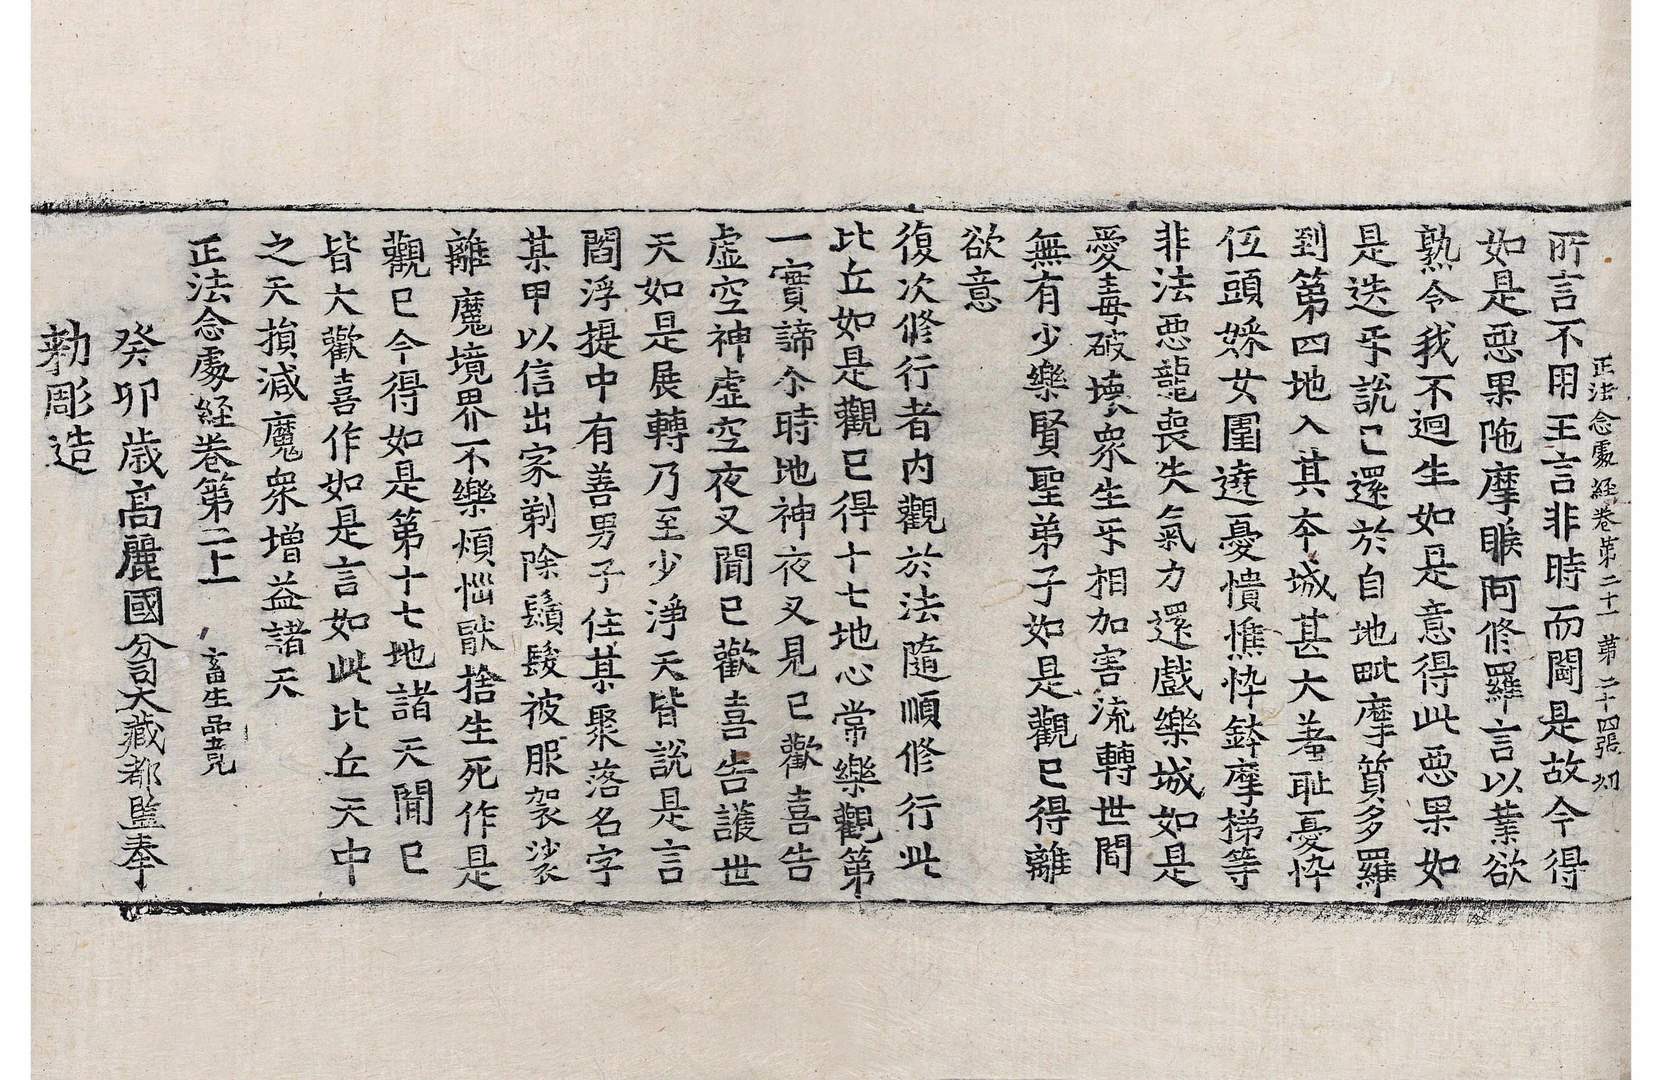 正法念處經卷第二十一 第二十四張 初
所言不用王言非時而鬪是故今得
如是惡果陁摩睺阿修羅言以業欲
熟令我不迴生如是意得此惡果如
是迭𠃔說已還於自地毗摩質多羅
到第四地入其本城甚大羞耻憂悴
伍頭婇女圍遶憂憒憔悴鉢摩梯等
非法惡龍喪失氣力還戲樂城如是
愛毒破壞衆生𠃔相加害流轉世間
無有少樂賢聖弟子如是觀已得離
欲意
復次修行者內觀於法隨順修行此
比丘如是觀已得十七地心常樂觀第
一實諦尒時地神夜叉見已歡喜告
虛空神虛空夜叉聞已歡喜告護世
天如是展轉乃至少淨天皆說是言
閻浮提中有善男子住某聚落名字
某甲以信出家剃除鬚髮被服袈裟
離魔境界不樂煩惱猒捨生死作是
觀已今得如是第十七地諸天聞已
皆大歡喜作如是言如此比丘天中
之天損減魔衆增益諸天
正法念處經卷第二十一 畜生品竟
癸卯歲高麗國分司大藏都監奉
勑彫造